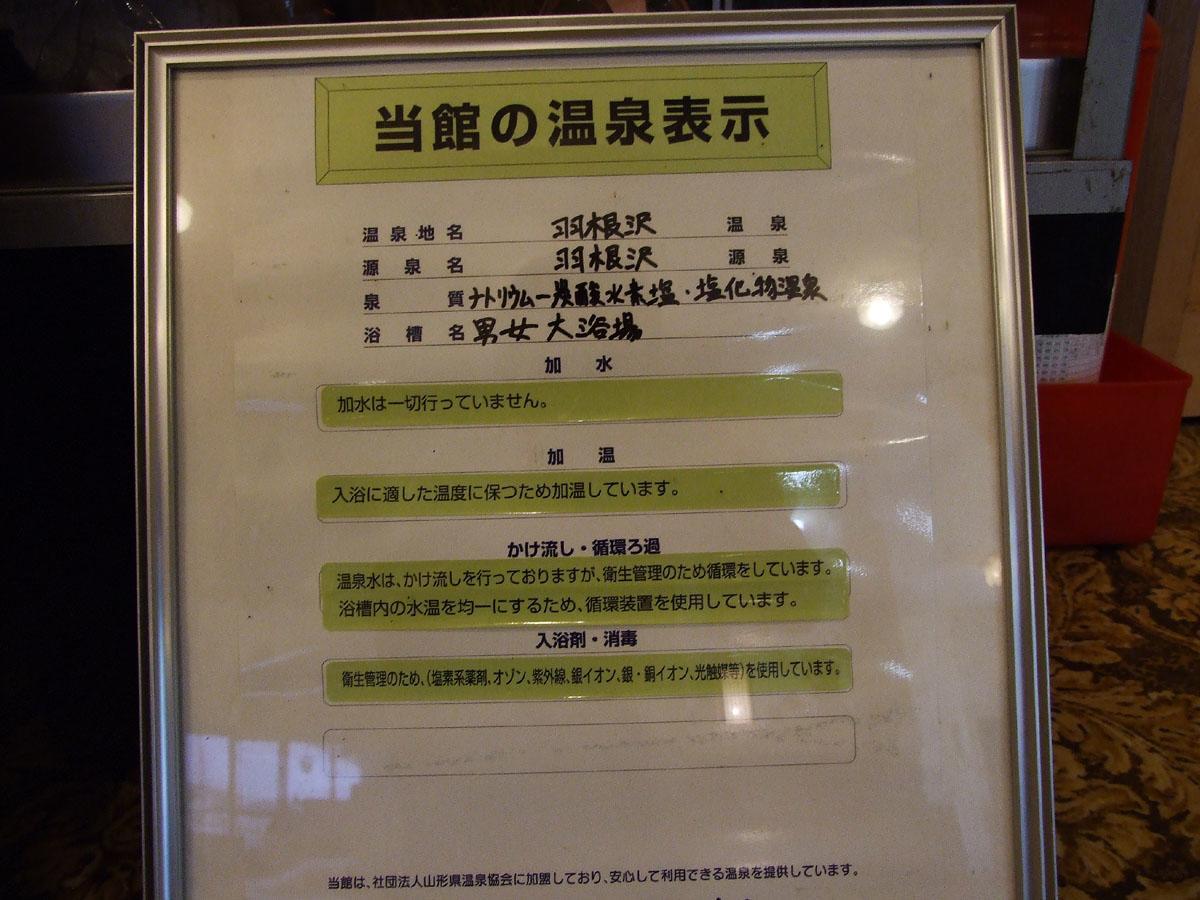 当館の温泉表示
温泉地名 羽根沢 温泉
源泉名 羽根沢 源泉
泉質 ナトリウムー炭酸水素塩・塩化物温泉
浴槽名 男女大浴場
加水
加水は一切行っていません。
加温
入浴に適した温度に保つため加温しています。
かけ流し・循環ろ過
温泉水は、かけ流しを行っておりますが、衛生管理のため循環をしています。
浴槽内の水温を均一にするため、循環装置を使用しています。
入浴剤・消毒
衛生管理のため、(塩素系薬剤、オゾン、紫外線、銀イオン、銀・銅イオン、光触媒等)を使用しています。
当館は、社団法人山形県温泉協会に加盟しており、安心して利用できる温泉を提供しています。